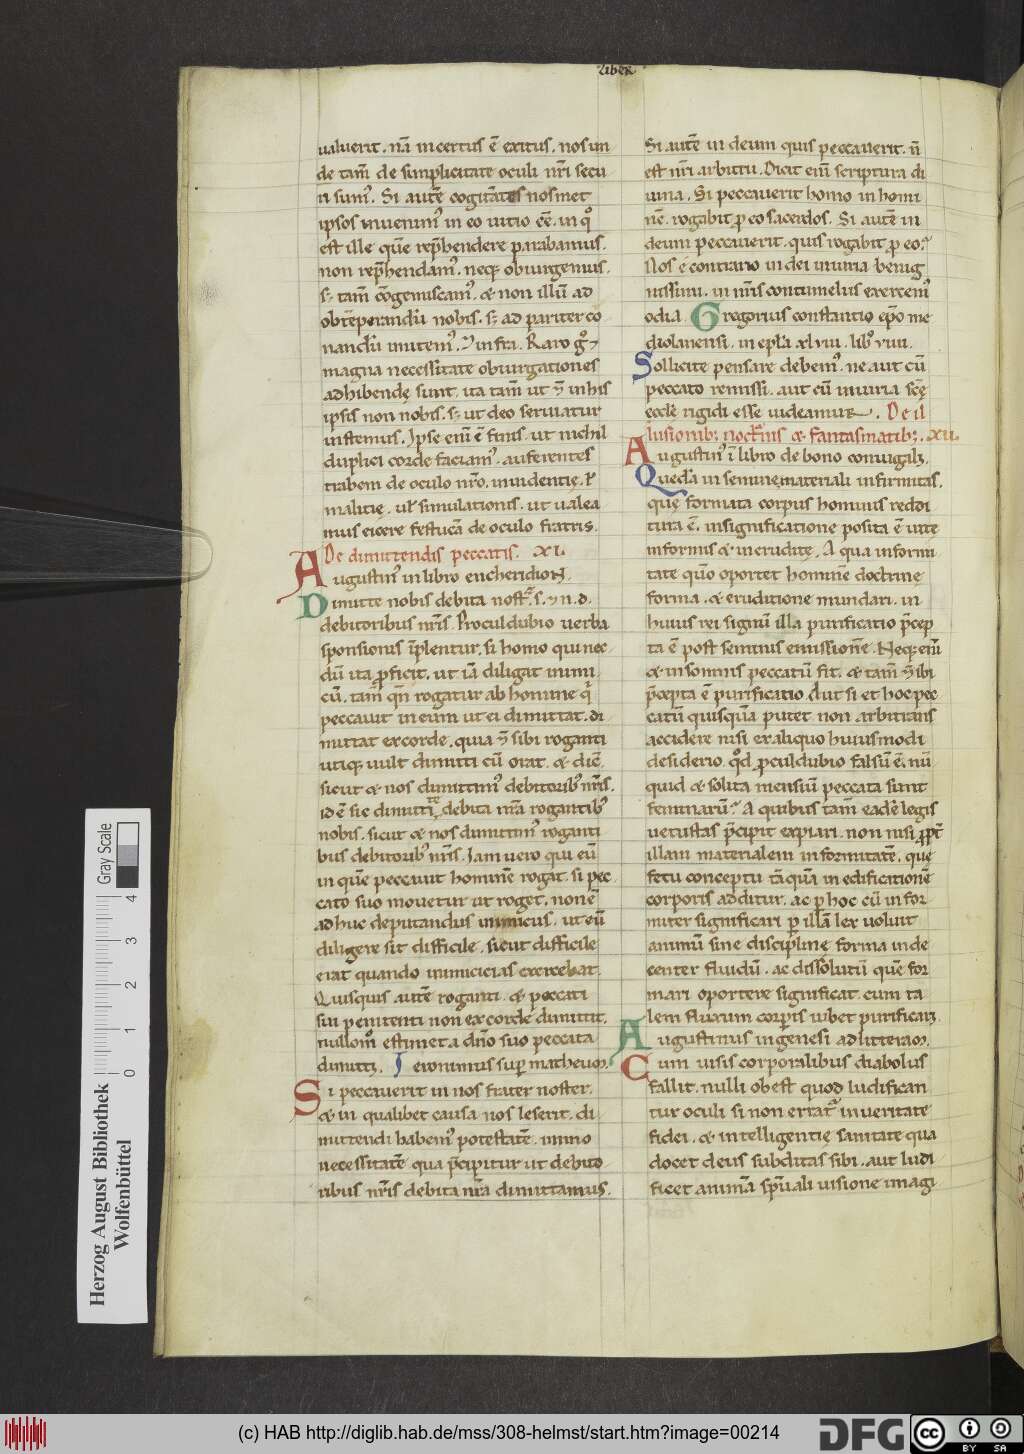 Liber
ualuerit. nā incertus ē exitus. nos un
de tam̄ de simplicitate oculi nr̄i secu
ri sum⁹. Si autē cogitātes nosmet
ipsos inuenim⁹ in eo uitio eē. in q̊
est ille quē rep̄hendere parabamus.
non rep̄hendam⁹. neq; obiurgemus.
s; tam̄ cōgemiscam⁹. & non illū ad
obtēperandū nobis. s; ad pariter co
nandū inuitem⁹. & infra. Raro g̊ &
magna necessitate obiurgationes
adhibendę sunt. ita tam̄ ut & in his
ipsis non nobis. s; ut deo seruiatur
instemus. Ipse eni ē finis. ut nichil
duplici corde faciam⁹. auferentes
trabem de oculo nr̄o. inuidentię. ł
malitię. uł simulationis. ut ualea
mus eicere festucā de oculo fratris.
De dimittendis peccatis. XI.
Augustin⁹ in libro encheridion.
Dimitte nobis debita nostra. s. & n. d.
debitoribus nr̄is. Proculdubio uerba
sponsionis īplentur. si homo qui nec
dū ita p̄ficit. ut iā diligat inimi
cū. tam̄ qn̄ rogatur ab homine q̄
peccauit in eum ut ei dimittat. di
mittat ex corde. quia & sibi roganti
utiq; uult dimitti cū orat. & dic̄.
sicut & nos dimittim⁹ debitorib⁹ nr̄is.
id ē sic dimitte debita nr̄a rogantib⁹
nobis. sicut & nos dimittim⁹ roganti
bus debitorib⁹ nr̄is. Iam uero qui eū
in quē peccauit hominē rogat. si pec
cato suo mouetur ut roget. non ē
adhuc deputandus inimicus. ut eū
diligere sit difficile. sicut difficile
erat quando inimicicias exercebat.
Quisquis autē roganti. & peccati
sui penitenti non ex corde dimittit.
nullom̄ estimet a dn̄o suo peccata
dimitti. Ieronimus sup matheum.
Si peccauerit in nos frater noster.
& in qualibet causa nos leserit. di
mittendi habem⁹ potestatē. immo
necessitatē qua p̄cipitur ut debito
ribus nr̄is debita nr̄a dimittamus.
Si autē in deum quis peccauerit. n̄
est nr̄i arbitrii. Dicit eni scriptura di
uina. Si peccauerit homo in homi
nē. rogabit p eo sacerdos. Si autē in
deum peccauerit. quis rogabit p eo?
Nos e contrario in dei iniuria benig
nissimi. in nr̄is contumeliis exercem⁹
odia. Gregorius constantio ep̄o me
diolanensi. in epl'a xlviii. lib⁹ viii.
Sollicite pensare debem⁹. ne aut cū
peccato remissi. aut cū iniuria scē
ecclē rigidi esse uideamur. De il
lusionib; nocturnis & fantasmatib;. XII.
Augustin⁹ ī libro de bono coniugali.
Quedā in semine materiali infirmitas.
quę formata corpus hominis reddi
tura ē. in significatione posita ē uite
informis & inerudite. A qua informi
tate qm̄ oportet hominē doctrine
forma. & eruditione mundari. in
huius rei signū illa purificatio p̄cep
ta ē post seminis emissionē. Neq; enī
& in somnis peccatū fit. & tam̄ & ibi
p̄cepta ē purificatio. Aut si et hoc pec
catū quisquā putet. non arbitrans
accidere nisi ex aliquo huiusmodi
desiderio. qd̄ proculdubio falsū ē. nū
quid & solita mensiū peccata sunt
feminarū? A quibus tam̄ eadē legis
uetustas p̄cipit expiari. non nisi ppt̄
illam materialem informitatē. que
fetu conceptu tāquā in edificationē
corporis additur. ac p hoc cū infor
miter significari p illā lex uoluit
animū sine disciplinę forma inde
center fluidū. ac dissolutū quē for
mari oportere significat. cum ta
lem fluxum corporis iubet purificari.
Augustinus in genesi ad litteram.
Cum uisis corporalibus diabolus
fallit. nulli obest quod ludifican
tur oculi si non erratur in ueritate
fidei. & intelligentię sanitate qua
docet deus subditos sibi. aut ludi
ficet animā spūali uisione imagi
Herzog August Bibliothek
Wolfenbüttel
Gray Scale
0 1 2 3 4
(c) HAB http://diglib.hab.de/mss/308-helmst/start.htm?image=00214
DFG
cc BY SA